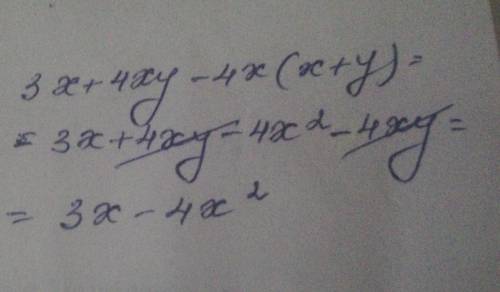 3x+4xy-4x(x+y)=
= 3x+4xy-4x²-4xy=
= 3x-4x²